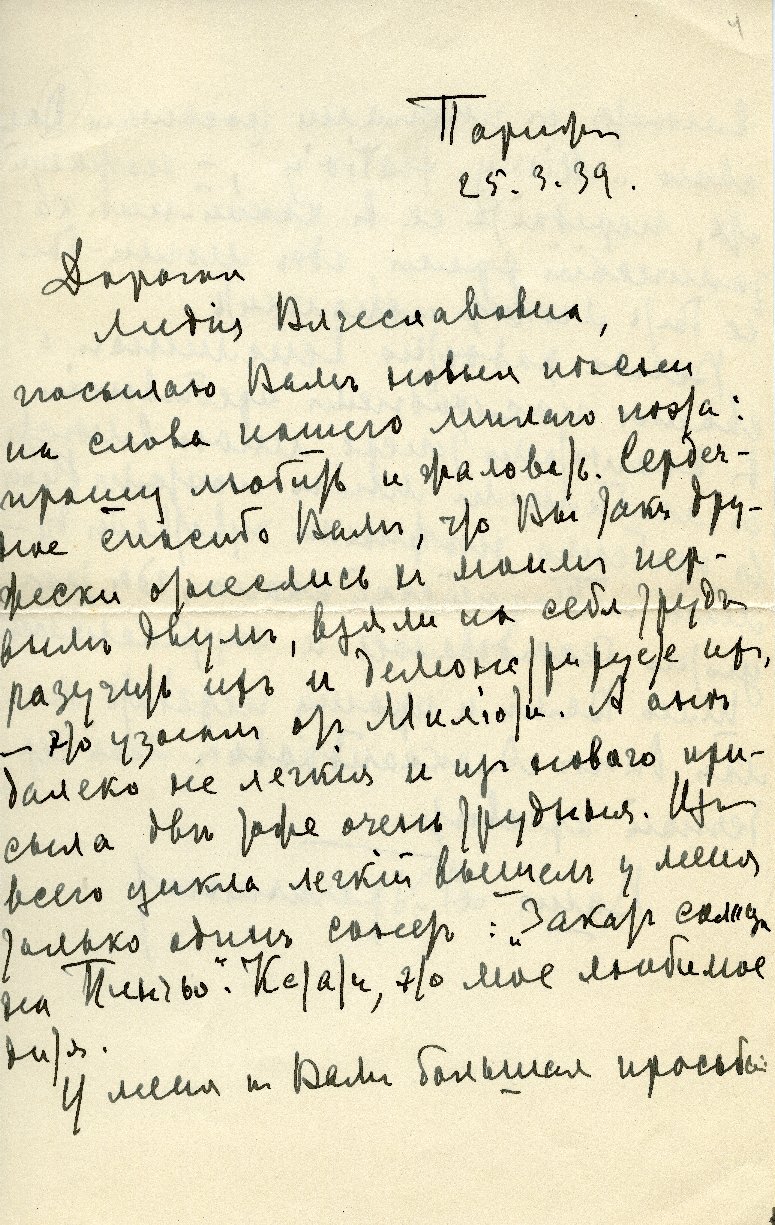 4
Парижъ
25.3.39.
Дорогая
Лидія Вячеславовна,
посылаю Вамъ новыя пѣсни
на слова нашего милаго поэта:
прошу любить и жаловать. Сердеч-
ное спасибо Вамъ, что Вы такъ дру-
жески отнеслись къ моимъ пер-
вымъ двумъ, взяли на себя трудъ
разучить ихъ и демонстрируете ихъ,
— это узналъ отъ Миліоти. А онѣ
далеко не легкія и изъ новаго при-
сыла двѣ тоже очень трудныя. Изъ
всего цикла легкій вышелъ у меня
только одинъ сонетъ: „Закат солнца
на Пинчьо". Кстати, это мое любимое
дитя.
У меня къ Вамъ большая просьба: